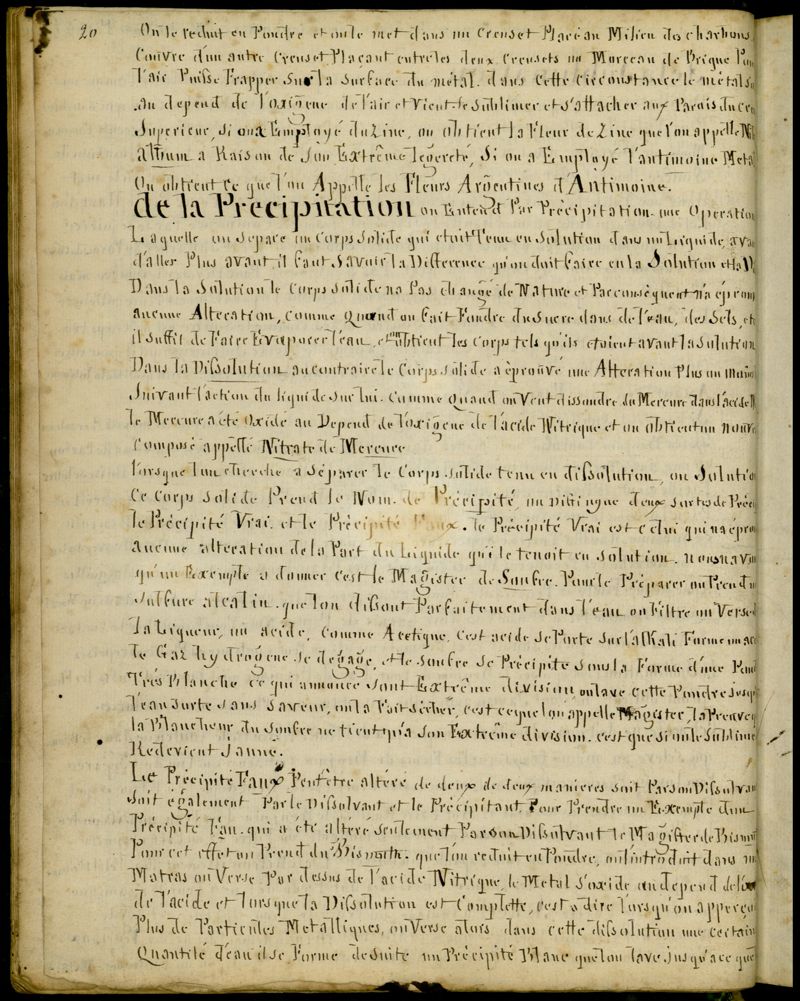 20
On le reduit en Poudre et on le met dans un Creuset Placé au Milieu des charbons,
Couvre d'un autre Creuset Plaçant entre les deux Creusets un Morceau de Brique Pour
l'air Puisse Frapper Sur la Surface du métal. dans Cette Circonstance le métal s'o
au depend de l'oxigene de l'air et Vient se Sublimer et S'attacher aux Parois du Creu
Superieur, Si on a Employé du Zinc, on obtient la Fleur de Zinc que l'on appelle Ni
album a Raison de Son Extrême légereté, Si on a Employé l'antimoine Metal
On obtient Ce que l'on Appelle les Fleurs Argentines d'Antimoine.
de la Précipitation on Entend Par Précipitation une Operation
Laquelle on Separe un Corps Solide qui etoit Tenu en Solution dans un Liquide, avan
d'aller Plus avant il Faut Savoir la Difference qu'on doit Faire en la Solution et la D
Dans la Solution le Corps Solide n'a Pas changé de Nature et Par consequent n'a éprou
aucune Alteration, Comme Quand on Fait Fondre du Sucre dans de l'eau, des Sels, et
il Suffit de Faire Evaporer l'eau, et on obtient les Corps tels qu'ils etoient avant la Solution
Dans la Dissolution au contraire le Corps Solide a éprouvé une Alteration Plus ou moins
Suivant l'action du liquide Sur lui. Comme Quand on Veut dissoudre du Mercure dans l'acide N
le Mercure a été Oxidé au Depend de l'oxigene de l'acide Nitrique et on obtient un nouve
Composé appellé Nitrate de Mercure
lorsque l'on cherche a Séparer le Corps Solide tenu en dissolution, ou Solutio
Ce Corps Solide Prend le Nom de Précipité, on distingue deux Sortes de Préci
le Précipité Vrai. et le Précipité Faux. le Précipité Vrai est Celui qui n'a épro
aucune alteration de la Part du Liquide qui le tenoit en Solution. nous n'avon
qu'un Exemple a donner C'est le Magister de Soufre. Pour le Préparer on Prend u
Sulfure alcalin. que l'on dissout Parfaitement dans l'eau on Filtre on Verse
la Liqueur, un acide, Comme Acetique, C'est acide Se Porte Sur l'alkali Forme un ac
le Gaz hydrogene Se degage, et le Soufre Se Précipite Sous la Forme d'une Pou
Très Blanche Ce qui annonce Son Extrême division, on lave Cette Poudre Jusq
l'eau Sorte Sans Saveur, on la Fait Sécher, C'est Ce que l'on appelle Magister, la Preuve q
la Blancheur du Soufre ne tient qu'a Son Extrême division. C'est que Si on le Sublime
Redevient Jaune.
Le Précipité Faux Peut être altéré de deux de deux manieres Soit Par Son Dissolvan
Soit également Par le Dissolvant et le Précipitant Pour Prendre un Exemple d'un
Précipité Fau. qui a été altéré Seulement Par Son Dissolvant le Magister de Bismut
Pour Cet effet on Prend du Bismuth. que l'on reduit en Poudre, on l'introduit dans un
Matras on Verse Par dessus de l'acide Nitrique, le Metal S'oxide au depend de l'ox
de l'acide et lorsque la Dissolution est Complette, C'est a dire lorsqu'on apperço
Plus de Particules Metalliques, on Verse alors dans cette dissolution une Certain
Quantité d'eau il Se Forme de Suite un Précipité Blanc que l'on lave Jusqu'a ce que